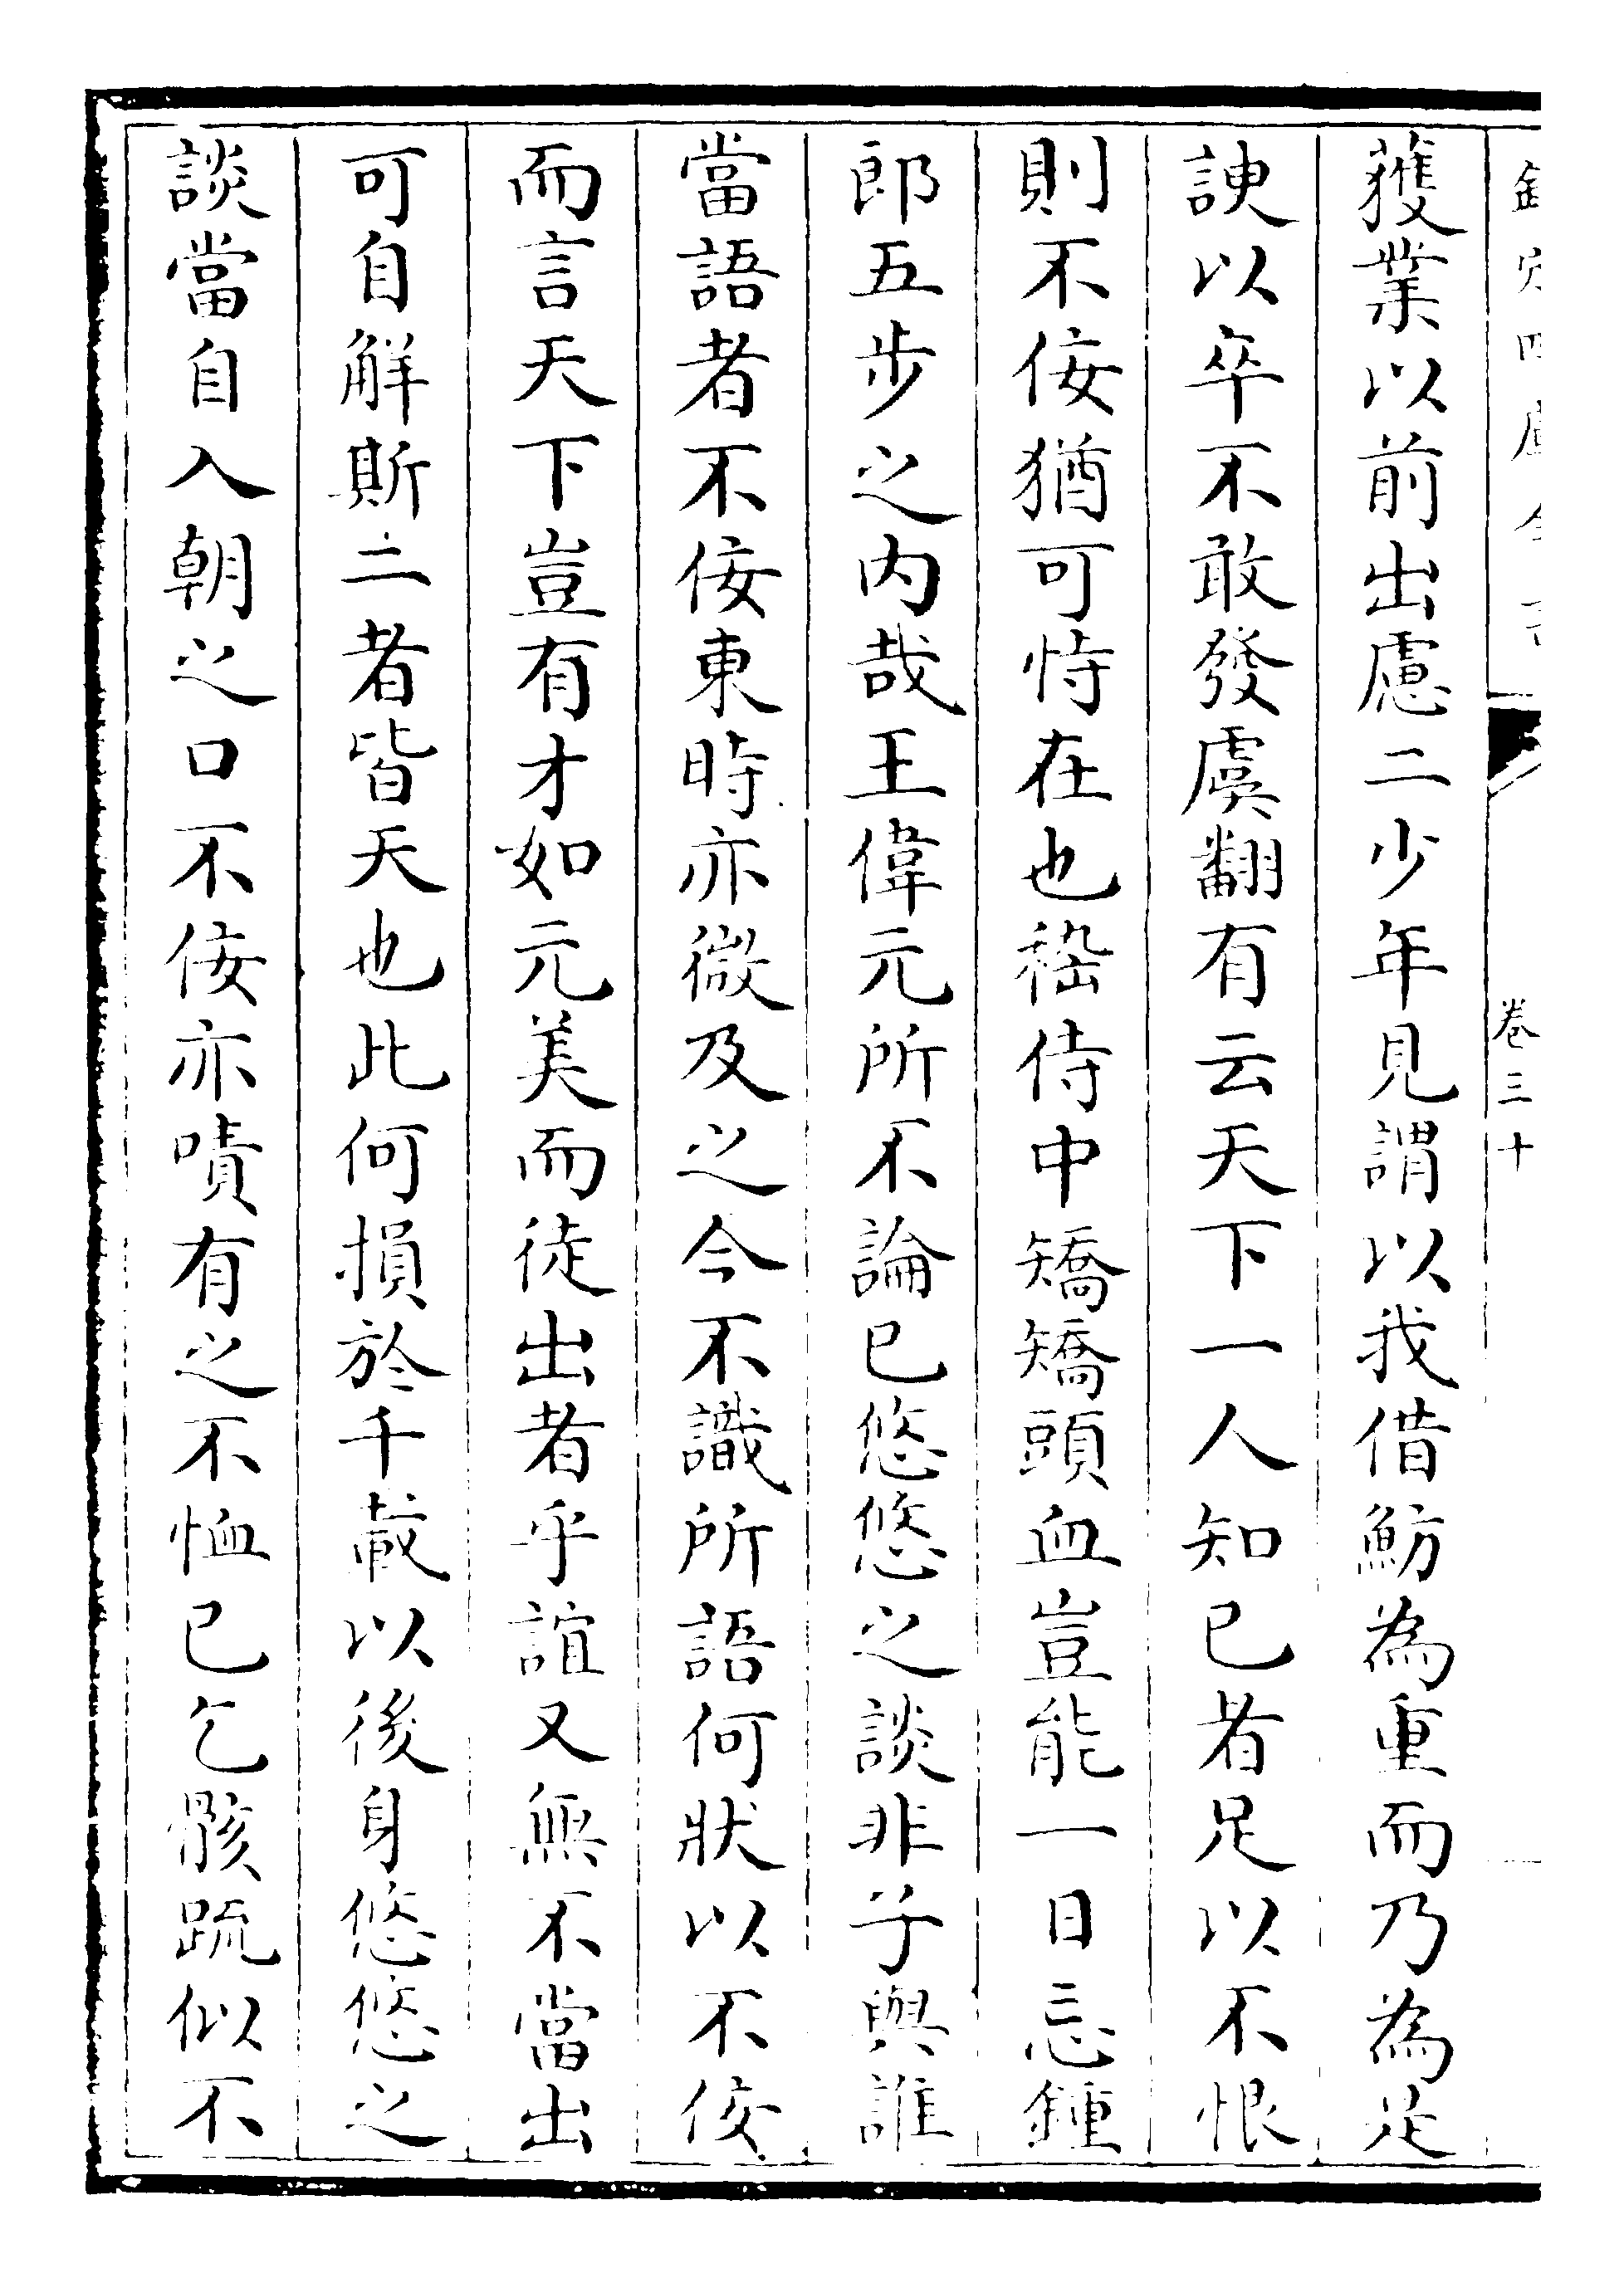 欽定四庫全書
卷三十
獲業以前出慮二少年見謂以我借魴為重而乃為足
諛以卒不敢發虞翻有云天下一人知已者足以不恨
則不佞猶可恃在也嵇侍中矯矯頭血豈能一日忘鍾
郎五步之内哉王偉元所不論已悠悠之談非子與誰
當語者不佞東時亦微及之今不識所語何狀以不佞
而言天下豈有才如元美而徒出者乎誼又無不當出
可自解斯二者皆天也此何損於千載以後身悠悠之
談當自入朝之口不佞亦嘖有之不恤已乞骸䟽似不